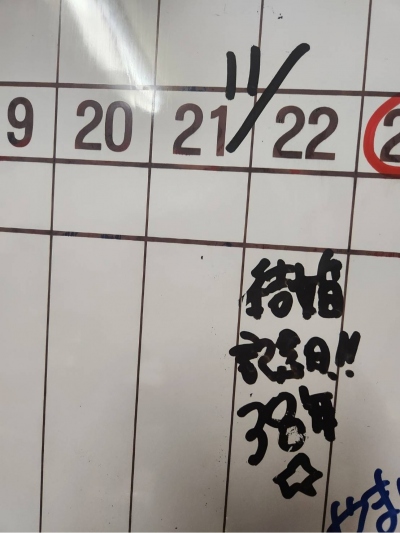 11/
9 20 21 22
結婚
記念日!!
38年
☆